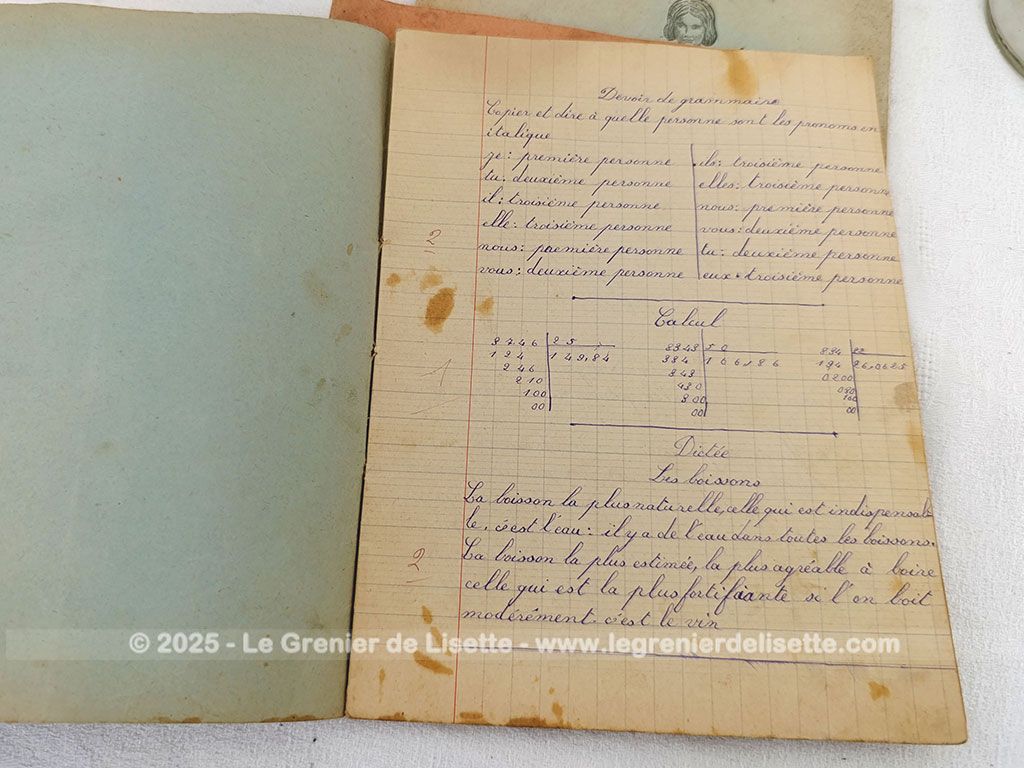 Devoir de grammaire
Copier et dire à quelle personne sont les pronoms en
italique
je: première personne
tu: deuxième personne
il: troisième personne
elle: troisième personne
nous: première personne
vous: deuxième personne
ils: troisième personne
elles: troisième personne
nous: première personne
vous: deuxième personne
tu: deuxième personne
eux: troisième personne
Calcul
3746 25
124 149,84
246
210
100
00
50
384
00
834 32
194 26,0625
0200
00
Dictée
Les boissons
La boisson la plus naturelle, celle qui est indispensab
le, c'est l'eau: il y a de l'eau dans toutes les boissons.
La boisson la plus estimée, la plus agréable à boire
celle qui est la plus fortifiante si l'on boit
modérément c'est le vin
© 2025 - Le Grenier de Lisette - www.legrenierdelisette.com